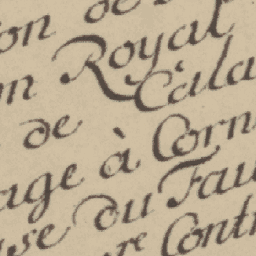 on de
n Royal
de Cala
age à Corn
se du Fau
re Cont